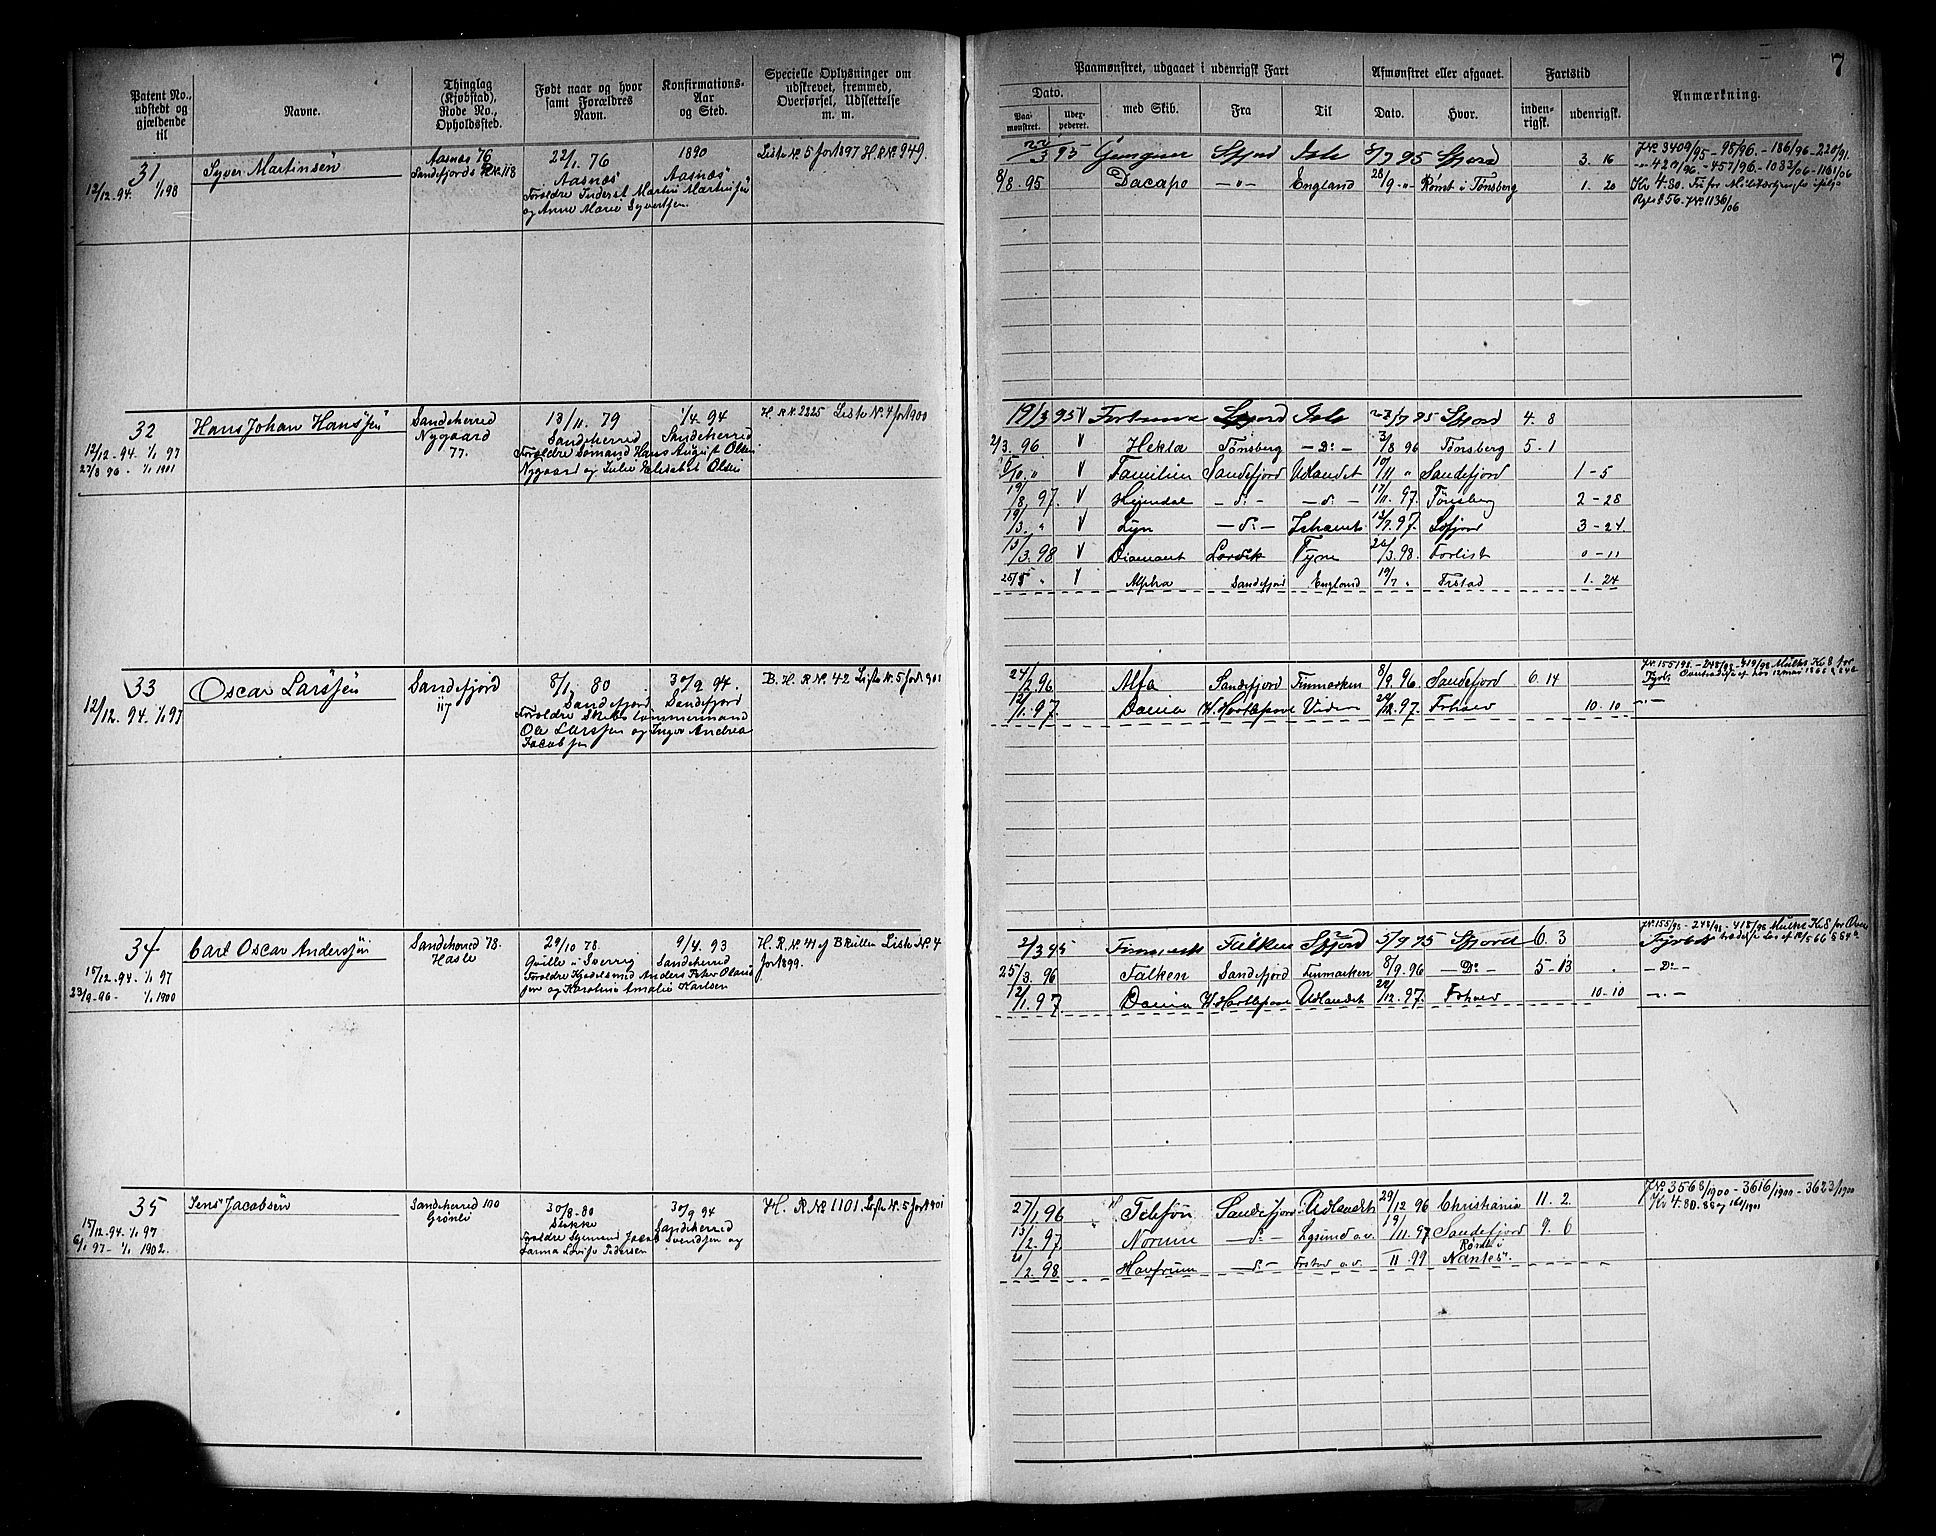 7
Patent No., udstedt og gjældende til
Navne.
Thinglag (Kjøbstad), Rode No., Opholdssted.
Født naar og hvor samt Forældres Navn.
Konfirmations-Aar og Sted.
Specielle Oplysninger om udskrevet, fremmed, Overførsel, Udslettelse m. m.
Paamønstret, udgaaet i udenrigsk Fart
Afmønstret eller afgaaet.
Fartstid
Anmærkning.
Dato.
med Skib.
Fra
Til
Dato.
Hvor.
inden-rigsk.
udenrigsk.
Paa-mønstret.
31
12/12-94. 1/1 98
Syver Martinsen
Aasnæs 76
Sandefjords R.No. 118
22/1. 76
Aasnæs
Forældre Inderst Martin Martinsen
og Anne Marie Syvertsen
1890
Aasnæs
Liste No. 5 for 1897 H.R.No. 949.
22/3 95 Gungner Sfjord 8/7 95 Sfjord 3. 16
8/8-95 Dacapo -"- England 28/9 -"- Rømt i Tønsberg 1. 20
J.No. 3409/95 - 98/96 - 186/96 - 220/91
420/96 - 457/96 - 1033/06 - 1161/06
J.No. 1136/06
32
12/12-94. 1/1 97
27/8 96 - 1/1 1901
Hans Johan Hansen
Sandeherred
Nygaard
77.
13/11. 79
Sandeherred
Forældre Sømand Hans August Olsen
Nygaard og Julie Elisabet Olsen
1/4. 94
Sandeherred
H. R.No. 2225 Liste No. 4 for 1900
19/3 95 V Fortuna Sfjord 23/7 95 Sfjord 4. 8
2/3. 96 V Hekla Tønsberg - Do: - 3/8 96 Tønsberg 5 - 1
V Familien Sandefjord Udlandet 10/11 " Sandefjord 1 - 5
19/8. 97. V Hejmdal - d: - - d: - 17/11. 97. Tønsberg 2 - 28
19/3. " V Lyn - d: - Ishavet 13/7. 97. Sfjord 3 - 24
15/3. 98 V Diamant Larvik Tyne 26/3. 98. Forlist 0 - 11
25/5 " V Alpha Sandefjord England 19/7 " Frstad 1. 24
33
12/12. 94. 1/1 97
Oscar Larssen
Sandefjord
117
8/1. 80
Sandefjord
Forældre Skibstømmermand
Ole Larssen og Inger Andrea
Jacobsen
30/9 94.
Sandefjord
B. H. R.No. 42 Liste No. 5 for 1901
24/2. 96 Alfa Sandefjord Finmarken 8/9. 96 Sandefjord 6. 14
12/1. 97 Dania W. Hartlepool 22/12. 97. 10. 10
34
15/12-94. 1/1 97
23/9-96 - 1/1 1900
Carl Oscar Anderssen
Sandeherred 78.
Hasle
29/10 78.
Qville i Sverrig
Forældre Anders Peter Olaus
sen og Karoline Amalie Karlsen
9/4. 93
Sandeherred
H. R. No. 41 af B Rullen Liste No. 4
for 1899.
2/3 95 Falken Sfjord 5/9 95 Sfjord 6. 3
25/3. 96 Falken Sandefjord Finmarken 8/9. 96 - Do: - 5 - 13 - Do: -
12/1. 97 Dania W. Hartlepool Udlandet 22/12. 97. 10 - 10
35
15/12-94. 1/1 97
6/1 97 - 1/1 1902.
Jens Jacobsen
Sandeherred 100
Grønli
30/8-80
Stokke
Forældre Styrmand Jacob Svendsen og
Larma Lovise Pedersen
30/9 94
Sandeherred
H. R No 1101 Liste No. 5 for 1901
27/1 96 Telefon Sandefjord Udlandet 29/12 96 Christiania 11. 2.
13/2. 97 Norum - d: - 19/11. 97 Sandefjord 9. 6
2/2. 98 Havfruen - d: - Frstad o.v. 11 99 Rømt i Nantes.
J.No. 3568/1900 - 3616/1900 - 3623/1900
Kr 4.80.